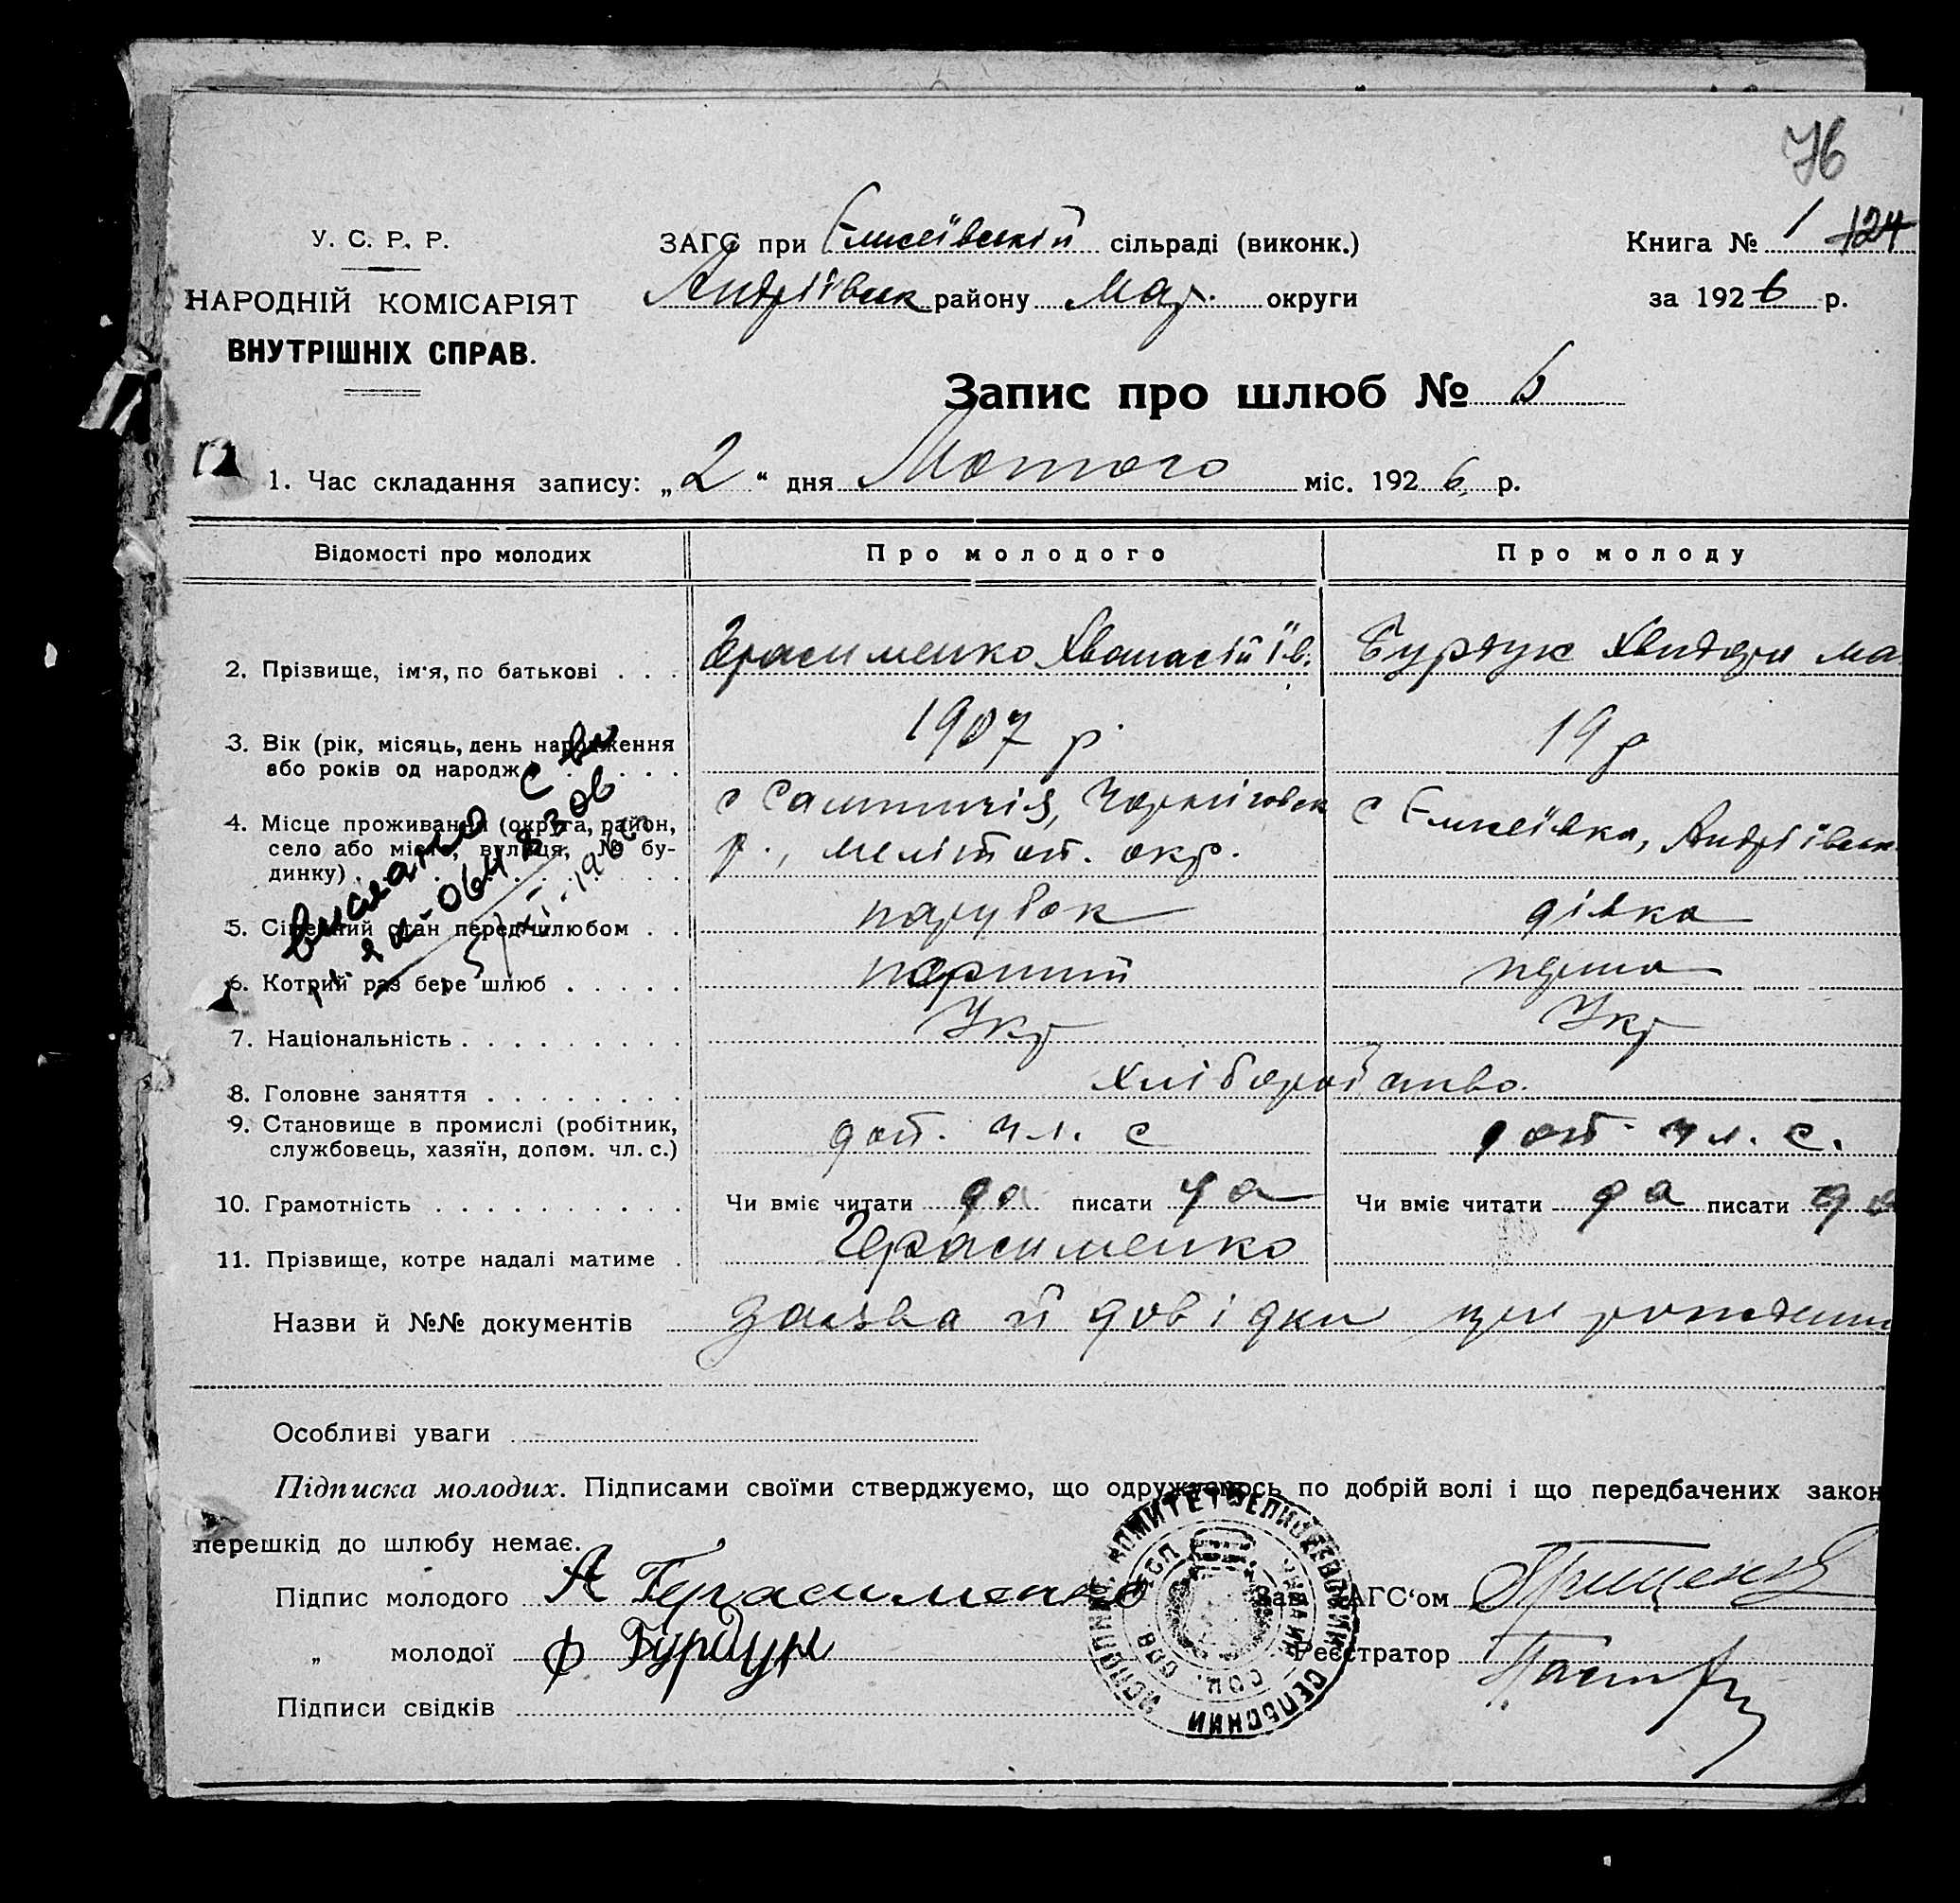 76
У. С. Р. Р.
НАРОДНІЙ КОМІСАРІЯТ
ВНУТРІШНІХ СПРАВ.
ЗАГС при Єлисеївській сільраді (виконк.)
Андріївськ району Мар. округи
Книга № 1 124
за 1926 р.
Запис про шлюб № 6
1. Час складання запису: „2“ дня Лютого міс. 1926 р.
Відомості про молодих Про молодого Про молоду
2. Прізвище, ім'я, по батькові . . . Герасименко Хванасій Ів. Бурдук
3. Вік (рік, місяць, день народження або років од народж. 1907 р. 19 р
4. Місце проживання (округа, район, село або місто, вулиця, № будинку) с р., мелітоп. окр. с Єлисеївка, Андріївськ
5. Сімейний стан перед шлюбом . . парубок дівка
6. Котрий раз бере шлюб . . . . . перший перша
7. Національність . . . . . . . . . Укр Укр
8. Головне заняття . . . . . . . . хліборобство.
9. Становище в промислі (робітник, службовець, хазяїн, допом. чл. с.) доп. чл. с доп. чл. с.
10. Грамотність . . . . . . . . . . Чи вміє читати да писати да Чи вміє читати да писати да
11. Прізвище, котре надалі матиме . Герасименко
Назви й №№ документів заява й довідки при
Особливі уваги
Підписка молодих. Підписами своїми стверджуємо, що одружуємось по добрій волі і що передбачених закон
перешкід до шлюбу немає.
Підпис молодого А Герасименко Зав. ЗАГС'ом Грищенко
„ молодої Ф Бурдук Реєстратор
Підписи свідків
ИСПОЛНИТ. КОМИТЕТ ЕЛИСЕЕВСКИЙ СЕЛЬСКИЙ
УКРАИН. СОЦ. СОВ.